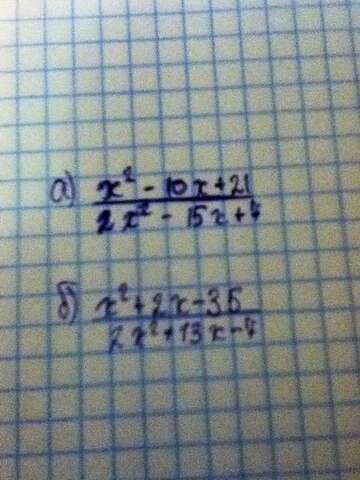 а) x² - 10x+21
2x² - 15x+7
б) x²+2x-35
2x²+13x-7